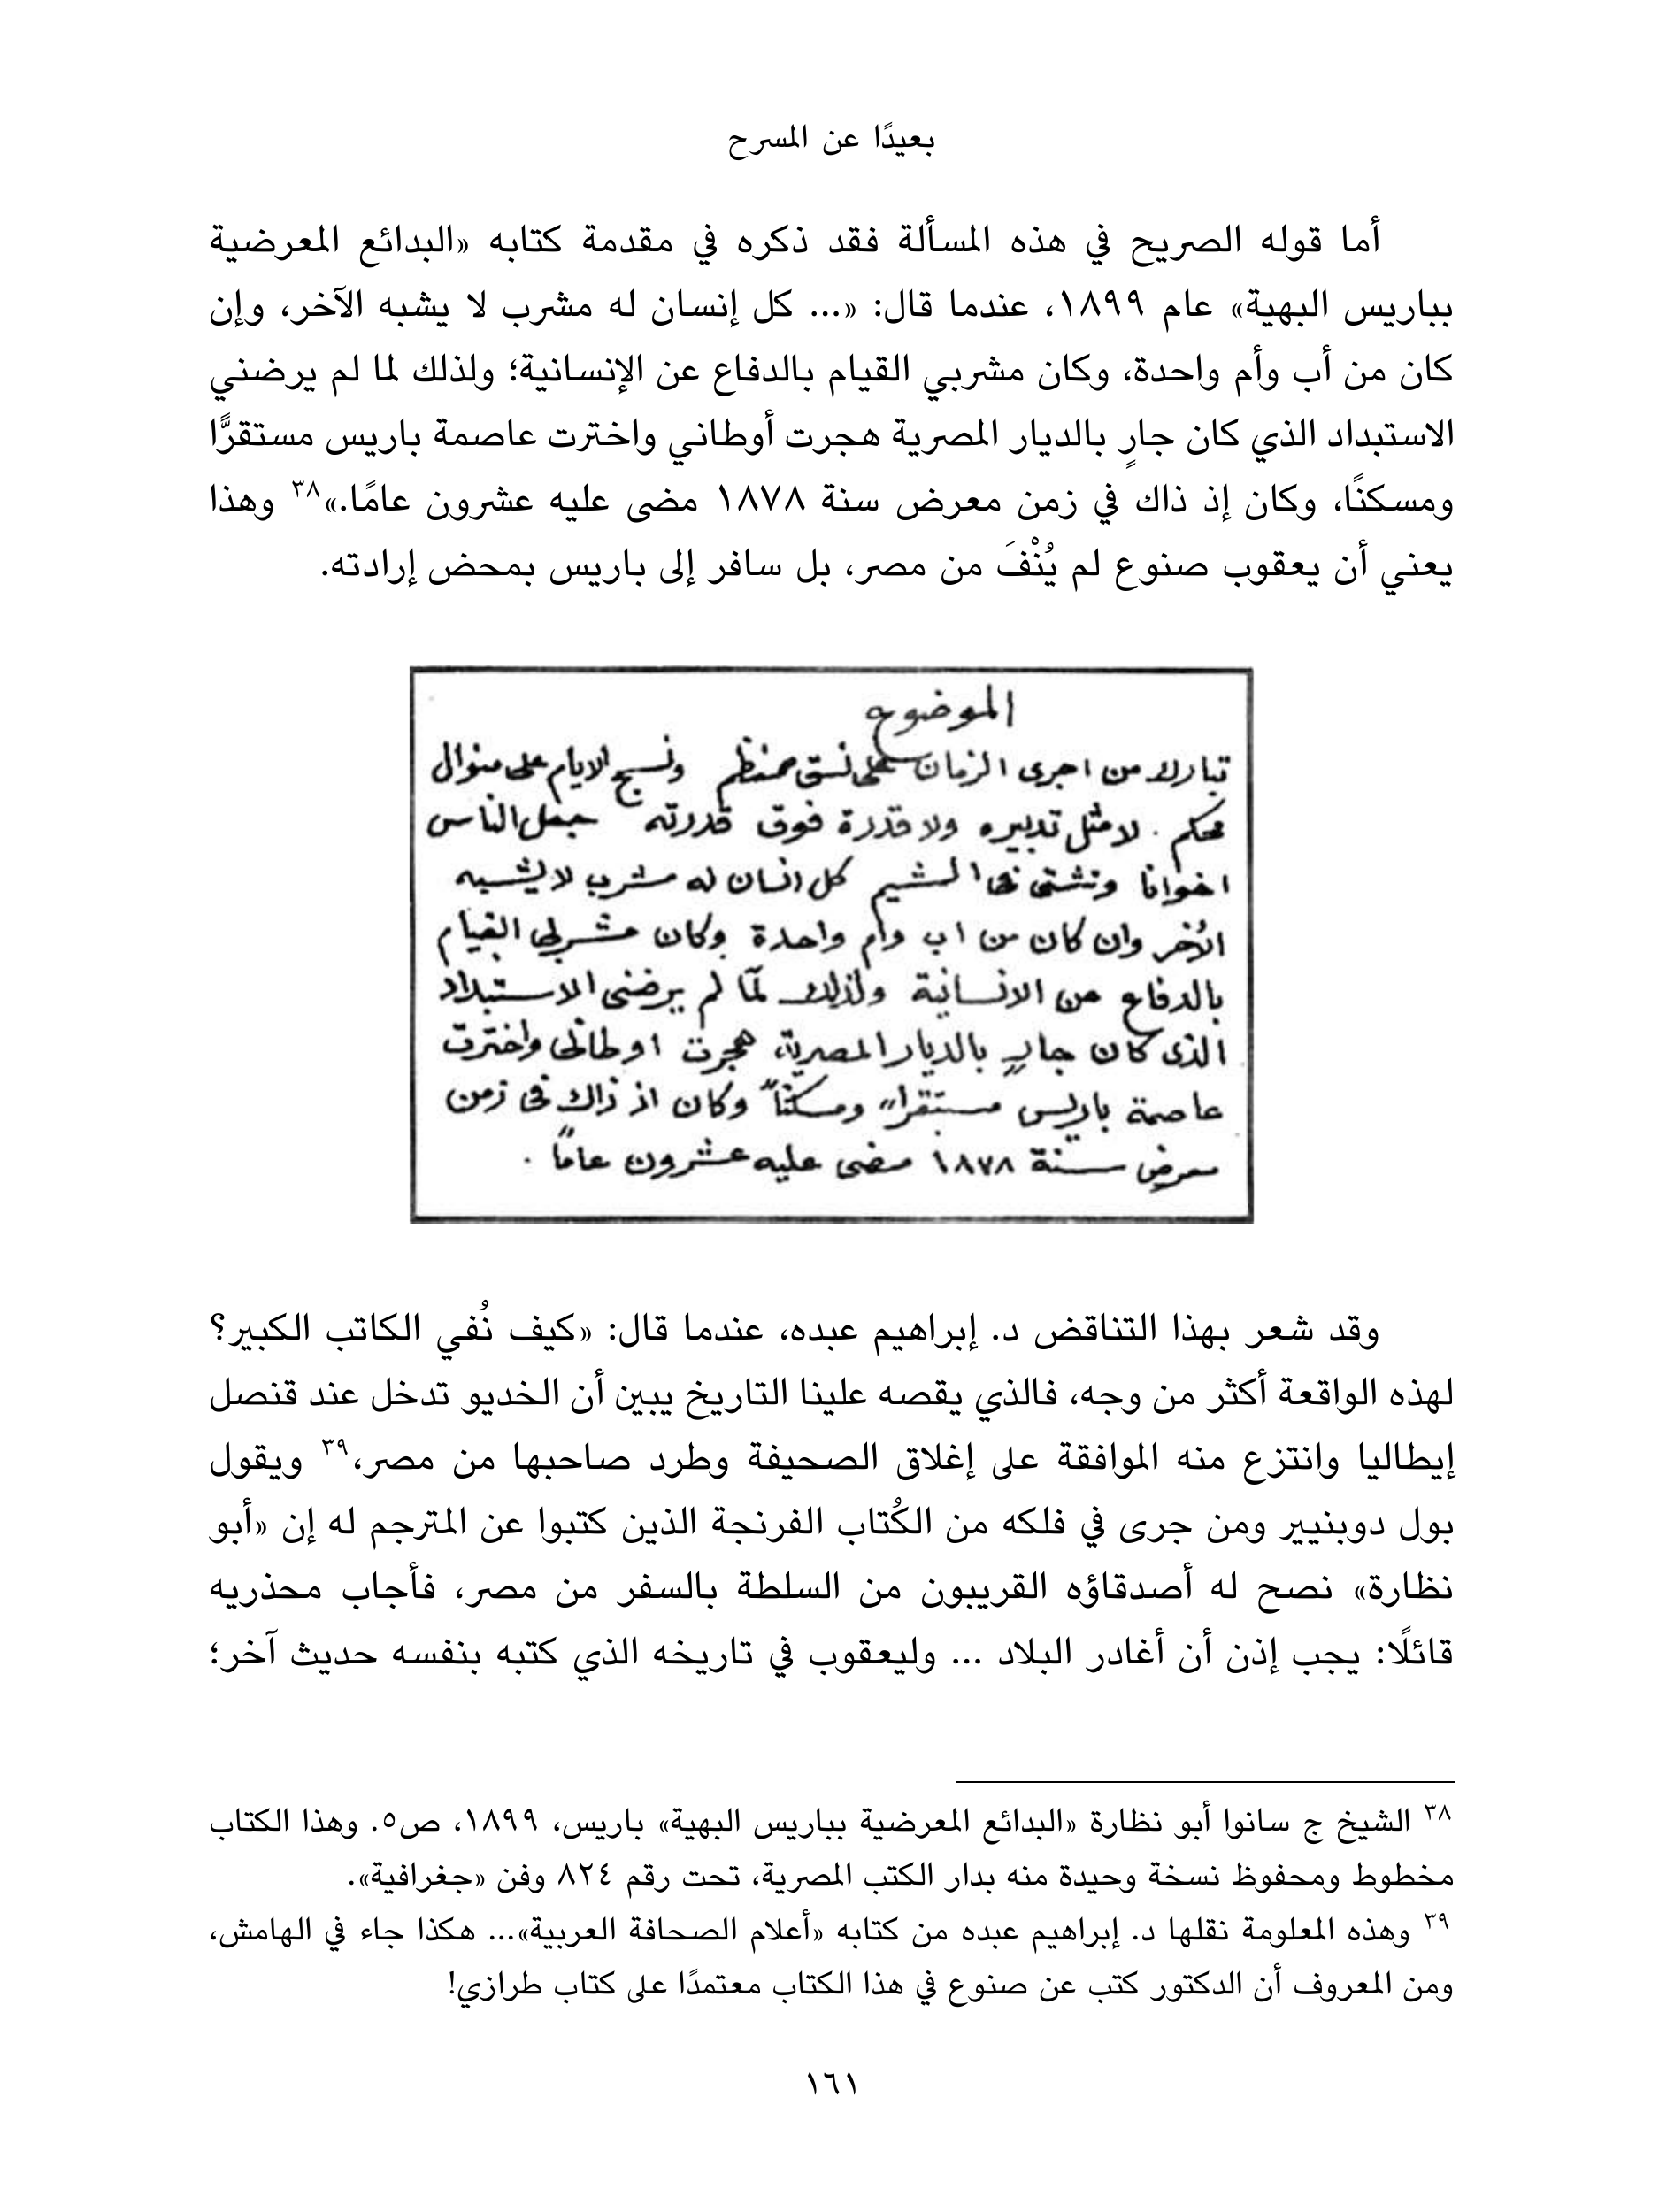 بعيدًا عن المسرح
أما قوله الصريح في هذه المسألة فقد ذكره في مقدمة كتابه «البدائع المعرضية
بباريس البهية» عام ١٨٩٩، عندما قال: «... كل إنسان له مشرب لا يشبه الآخر، وإن
كان من أب وأم واحدة، وكان مشربي القيام بالدفاع عن الإنسانية؛ ولذلك لما لم يرضني
الاستبداد الذي كان جارٍ بالديار المصرية هجرت أوطاني واخترت عاصمة باريس مستقرًّا
ومسكنًا، وكان إذ ذاك في زمن معرض سنة ١٨٧٨ مضى عليه عشرون عامًا.»٣٨ وهذا
يعني أن يعقوب صنوع لم يُنْفَ من مصر، بل سافر إلى باريس بمحض إرادته.
الموضوع
تبارك من اجرى الزمان على نسق منتظم ونسج الايام على منوال
محكم . لا مثل تدبيره ولا قدرة فوق قدرته جعل الناس
اخوانا وتشتى فى الشيم كل انسان له مشرب لا يشبه
الآخر وان كان من اب وام واحدة وكان مشربى القيام
بالدفاع عن الانسانية ولذلك لمّا لم يرضنى الاستبداد
الذى كان جارٍ بالديار المصرية، هجرت اوطانى واخترت
عاصمة باريس مستقراً ومسكناً وكان اذ ذاك فى زمن
معرض سنة ١٨٧٨ مضى عليه عشرون عاماً .
وقد شعر بهذا التناقض د. إبراهيم عبده، عندما قال: «كيف نُفي الكاتب الكبير؟
لهذه الواقعة أكثر من وجه، فالذي يقصه علينا التاريخ يبين أن الخديو تدخل عند قنصل
إيطاليا وانتزع منه الموافقة على إغلاق الصحيفة وطرد صاحبها من مصر،٣٩ ويقول
بول دوبنيير ومن جرى في فلكه من الكُتاب الفرنجة الذين كتبوا عن المترجم له إن «أبو
نظارة» نصح له أصدقاؤه القريبون من السلطة بالسفر من مصر، فأجاب محذريه
قائلًا: يجب إذن أن أغادر البلاد ... وليعقوب في تاريخه الذي كتبه بنفسه حديث آخر؛
٣٨ الشيخ ج سانوا أبو نظارة «البدائع المعرضية بباريس البهية» باريس، ١٨٩٩، ص٥. وهذا الكتاب
مخطوط ومحفوظ نسخة وحيدة منه بدار الكتب المصرية، تحت رقم ٨٢٤ وفن «جغرافية».
٣٩ وهذه المعلومة نقلها د. إبراهيم عبده من كتابه «أعلام الصحافة العربية»... هكذا جاء في الهامش،
ومن المعروف أن الدكتور كتب عن صنوع في هذا الكتاب معتمدًا على كتاب طرازي!
١٦١